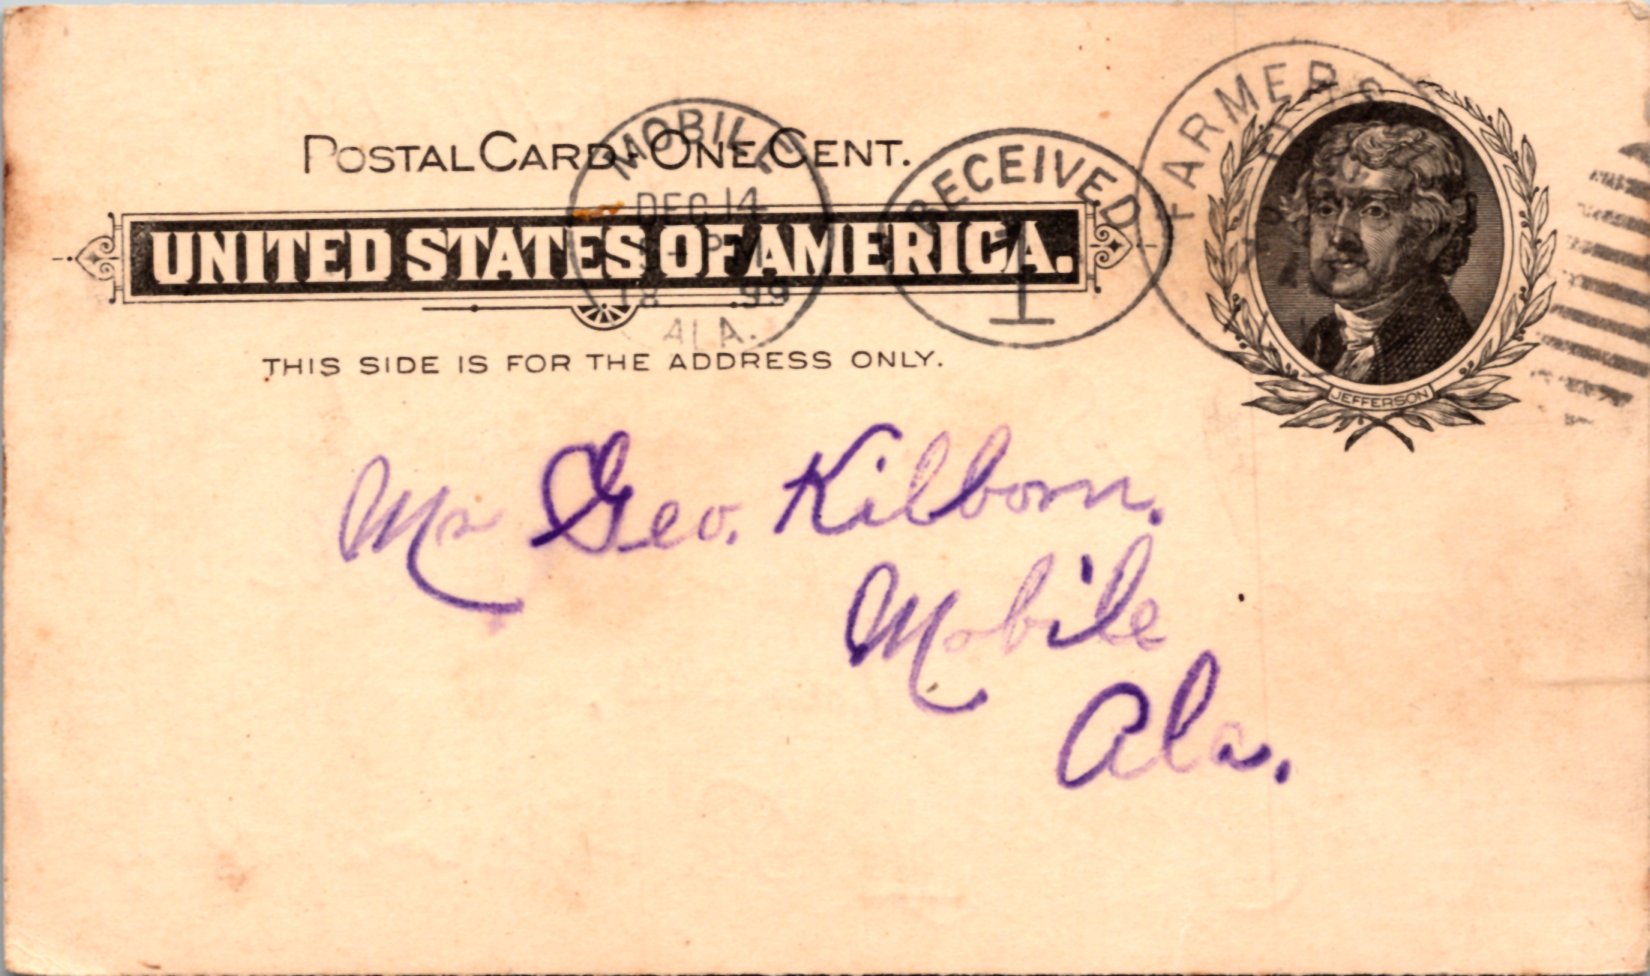 POSTAL CARD - ONE CENT.
UNITED STATES OF AMERICA.
THIS SIDE IS FOR THE ADDRESS ONLY.
MOBILE
DEC 14
99
ALA.
RECEIVED
1
FARMERS
JEFFERSON
Mr Geo. Kilborn.
Mobile
Ala.